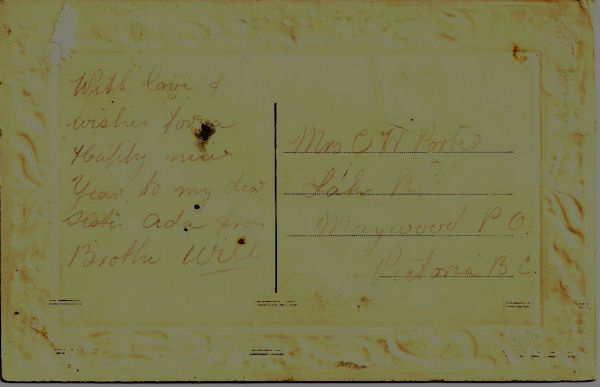 With love &
wishes for a
Happy new
Year to my dear
Sister Ada from
Brother Will
Mrs C W Porter
Lake Rd
Maywood P.O.
Victoria B.C.